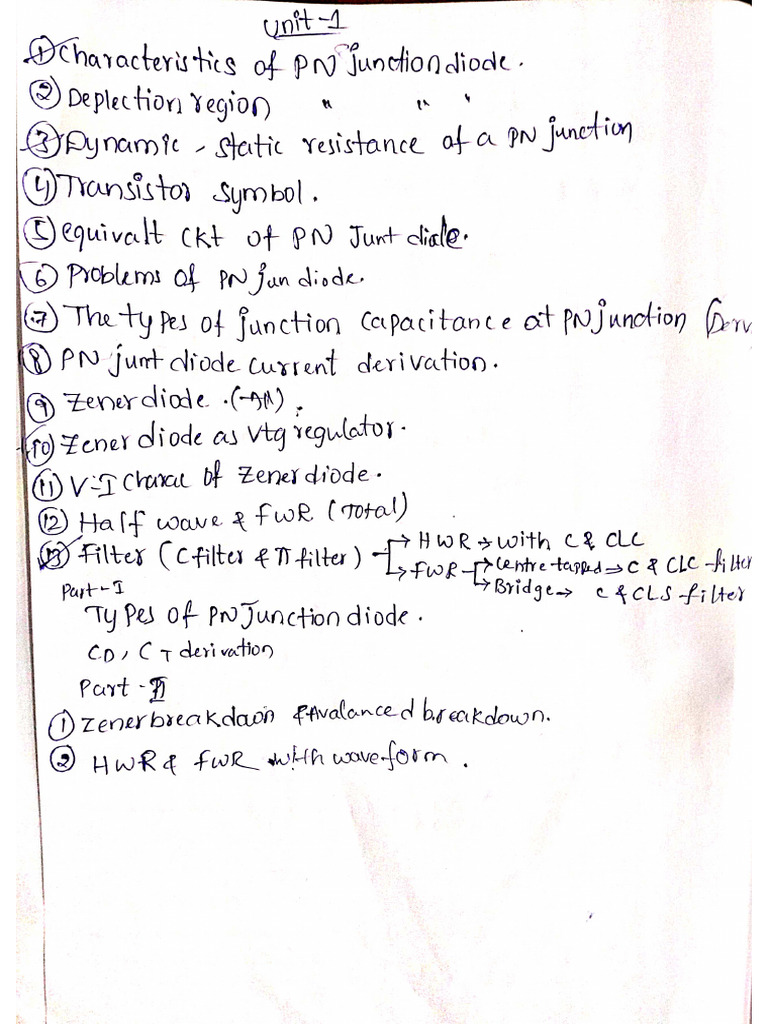 Unit-1
① Characteristics of PN junction diode.
② Deplection region " " "
③ Dynamic - static resistance of a PN junction
④ Transistor symbol.
⑤ equivalt ckt of PN Junt diale.
⑥ Problems of PN jun diode.
⑦ The types of junction capacitance at PN junction (Derv
⑧ PN junt diode current derivation.
⑨ Zener diode.
⑩ Zener diode as vtg regulator.
⑪ V-I charac of Zener diode.
⑫ Half wave & FWR (Total)
⑬ Filter (C filter & π filter) → HWR → with C & CLC
→ FWR → Centre tapped → C & CLC - filter
→ Bridge → C & CLS - filter
Part-I
Types of PN Junction diode.
CD, CT derivation
Part - II
① Zener breakdown & Avalanced breakdown.
② HWR & FWR with waveform.